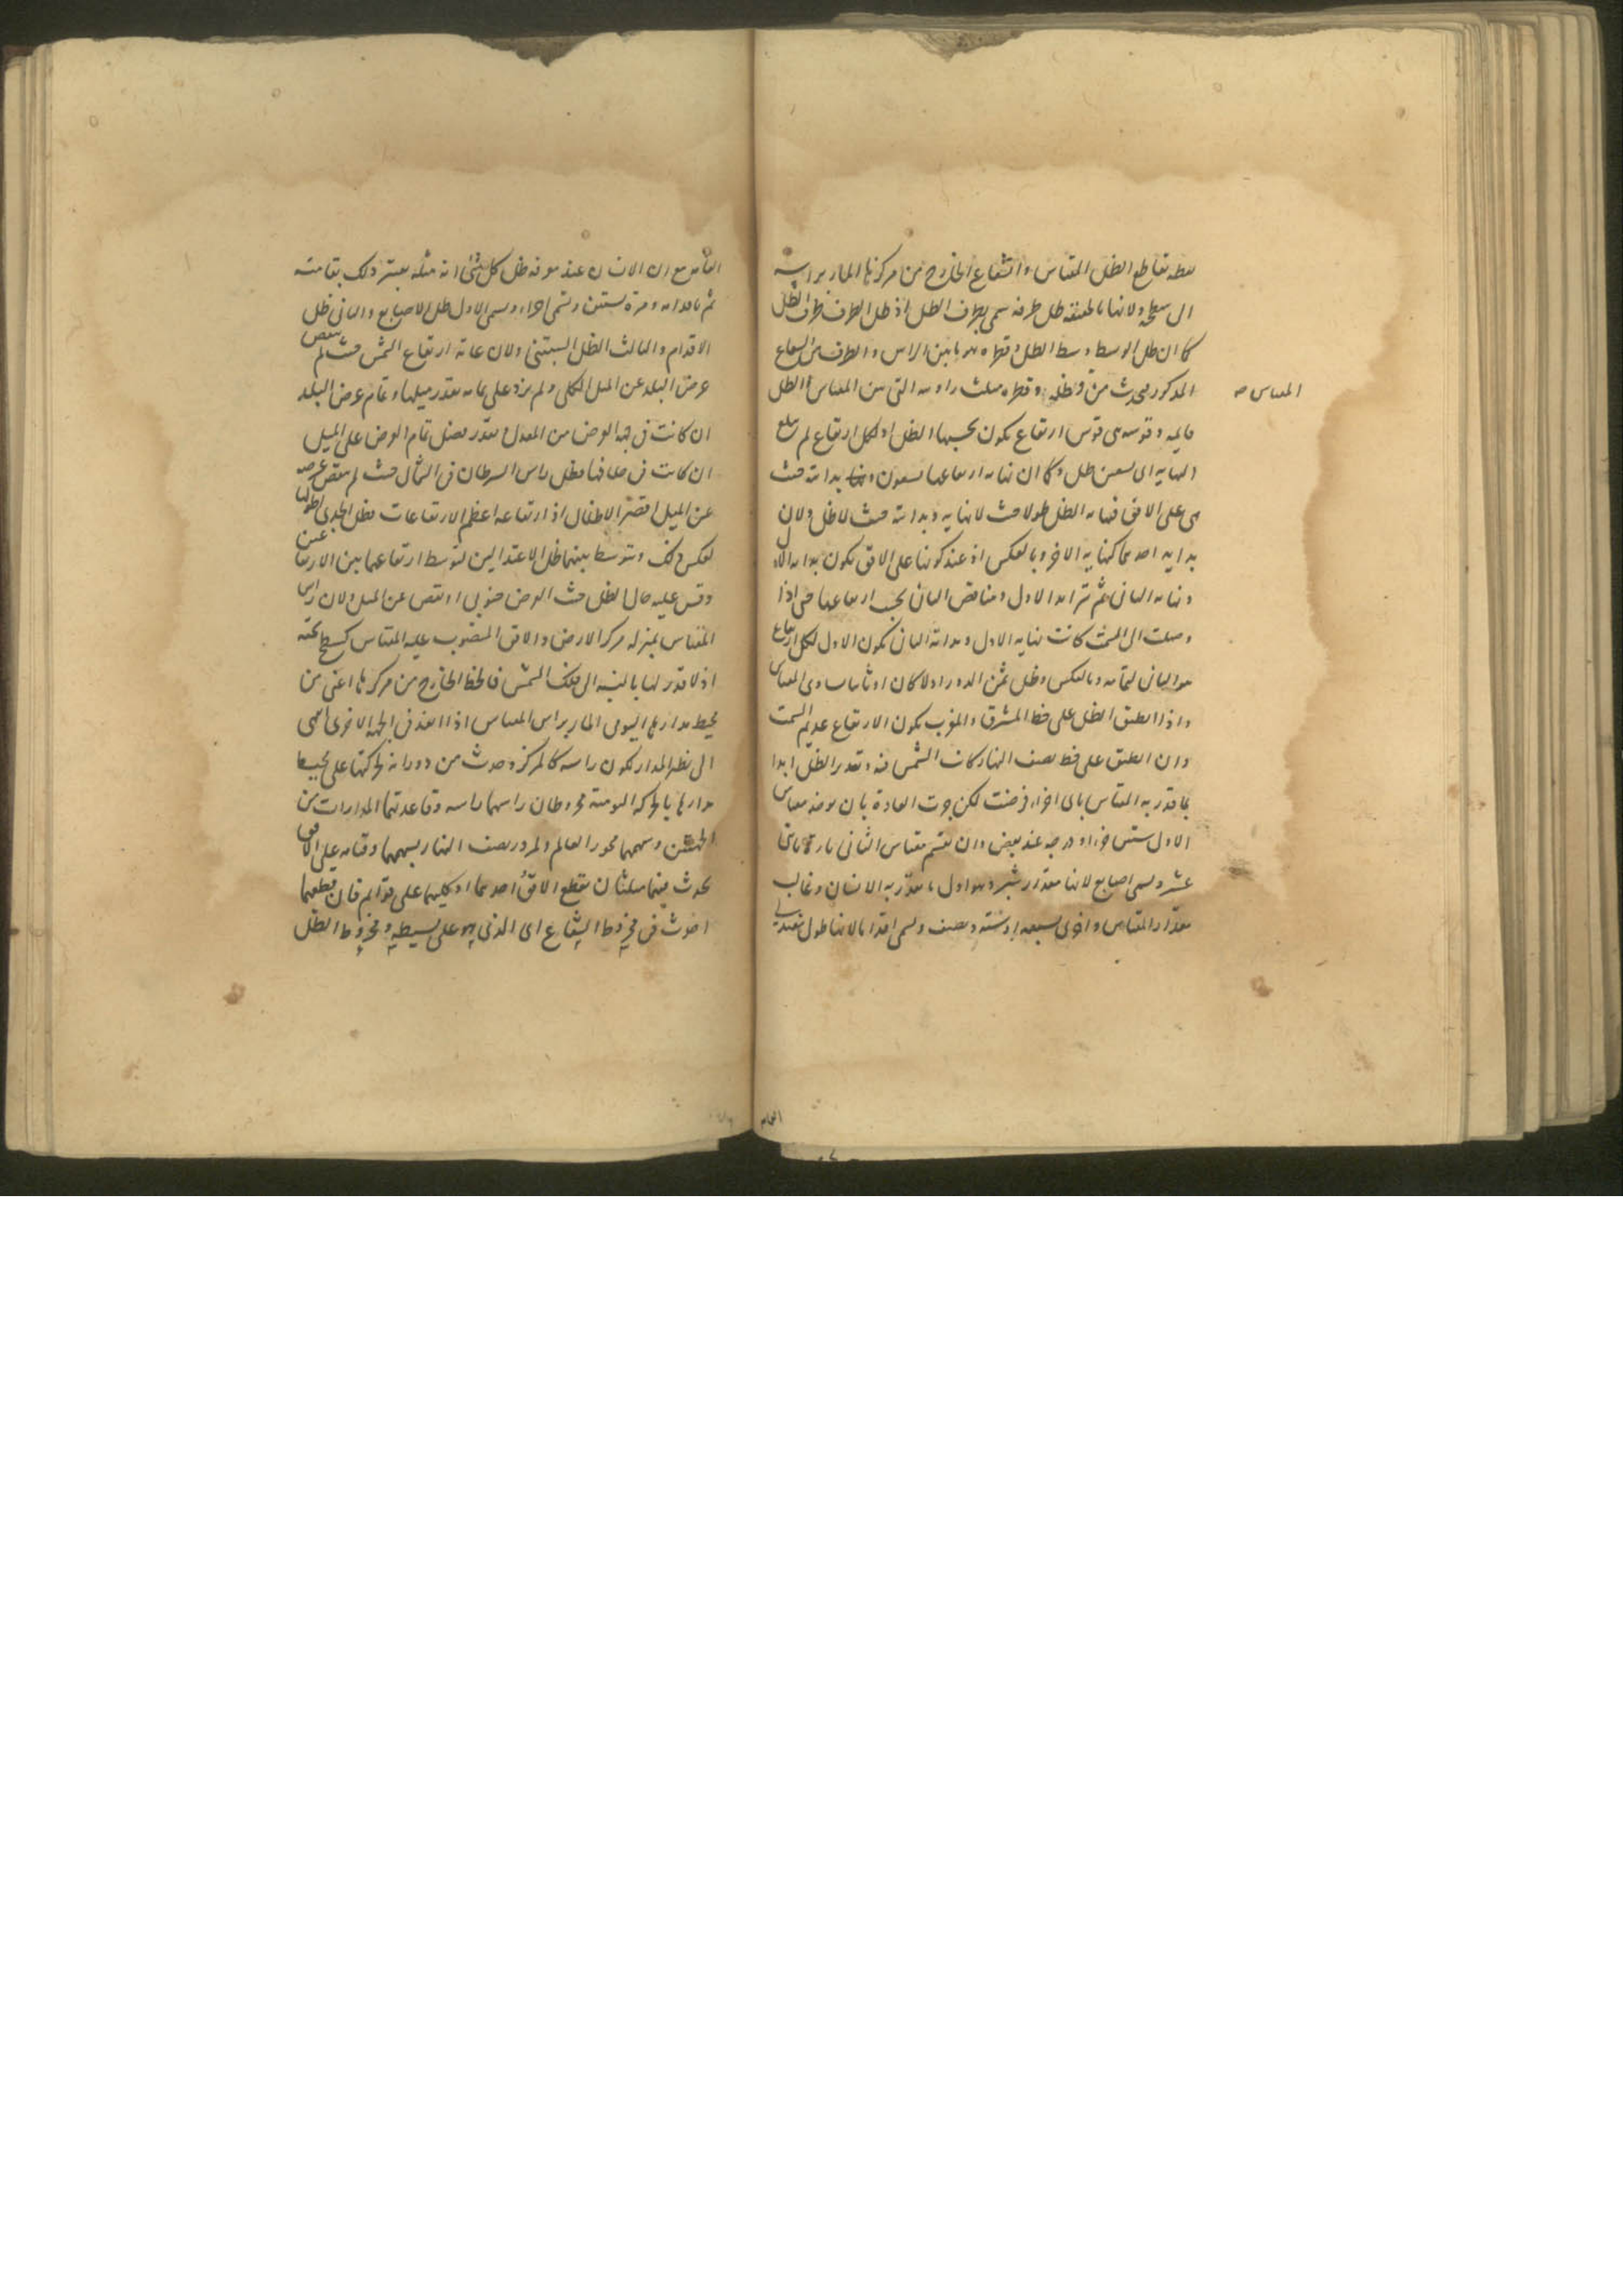 نقطه تقاطع الظل المقياس والشعاع الخارج من مركزها المار براسه
الى سطحه ولانها بالحقيقه ظل طرفه سمى بطرف الظل اذ ظل الطرف طرف الظل
كما ان ظل الوسط وسط الظل وقطره هو ما بين الراس والطرف من الشعاع
المذكور فيحدث منه وظله وقطره مثلث زاويته التى بين المقياس والظل
المقياس صح
قايمه وقوسه هى قوس ارتفاع يكون بحسبها الظل اذ لكل ارتفاع لم يبلغ
النهايه اى تسعين ظل وكما ان نهايه ارتفاعها تسعون وبدايته حيث
هى على الافق فنهايه الظل طولا حيث لا نهايه وبدايته حيث لا ظل ولان
بدايه احدهما كنهايه الاخر وبالعكس اذ عند كونها على الافق يكون بدايه الاول
ونهايه الثانى ثم تزايد الاول وتناقص الثانى بحسب ارتفاعها حتى اذا
وصلت الى السمت كانت نهايه الاول وبدايه الثانى يكون الاول لكل ارتفاع
هو الثانى لتمامه وبالعكس وظل ثمن الدور اولا كان او ثانيا يساوى المقياس
واذا انطبق الظل على خط المشرق والمغرب يكون الارتفاع عديم السمت
وان انطبق على خط نصف النهار كانت الشمس فيه وتقدير الظل ابدا
بما قدر به المقياس باى اجزاء فرضت لكن جرت العادة بان يوخذ مقياس
الاول ستين جزءا او درجه عند بعض وان يقسم مقياس الثانى تارة باثنى
عشر ويسمى اصابع لانها مقدار شبر وهو اول ما يقدر به الانسان وغالب
مقدار المقياس واخرى بسبعه او سته ونصف ويسمى اقداما لانها طول معتدلى
القامه
القامه مع ان الانسان عند معرفه ظل كل شئ انه مثله يعتبر ذلك بقامته
ثم باقدامه ومرة بستين ويسمى اجزاء ويسمى الاول ظل الاصابع والثانى ظل
الاقدام والثالث الظل الستينى ولان غاية ارتفاع الشمس حيث لم ينقص
عرض البلد عن الميل الكلى ولم يزد على تمامه بقدر ميلها وتمام عرض البلد
ان كانت فى جهه العرض من المعدل وبقدر فضل تمام العرض على الميل
ان كانت فى خلافها فظل راس السرطان فى الشمال حيث لم ينقص عرضه
عن الميل اقصر الاظلال اذ ارتفاعه اعظم الارتفاعات وظل الجدى اطولها
لعكس ذلك وتوسط بينهما ظل الاعتدالين لتوسط ارتفاعهما بين الارتفاعين
وقس عليه حال الظل حيث العرض جنوبى او نقص عن الميل ولان راس
المقياس بمنزله مركز الارض والافق المنصوب عليه المقياس كسطح تحته
اذ لا قدر لها بالنسبه الى فلك الشمس فالخط الخارج من مركزها اعنى من
محيط مدارها اليومى المار براس المقياس اذا انفذ فى الجهه الاخرى انتهى
الى نظير المدار فكون راسه كالمركز وحدث من دورانه لحركتها على محيط
مدارها بالحركه اليوميه مخروطان راسهما راسه وقاعدتهما المدارات من
الجهتين وسهمهما محور العالم ولمرور نصف النهار بسهمهما وقيامه على الافق
يحدث فيهما مثلثان يقطع الافق احدهما او كليهما على قوايم فان قطعهما
احدث فى مخروط الشعاع اى الذى هو على بسيطه ومخروط الظل